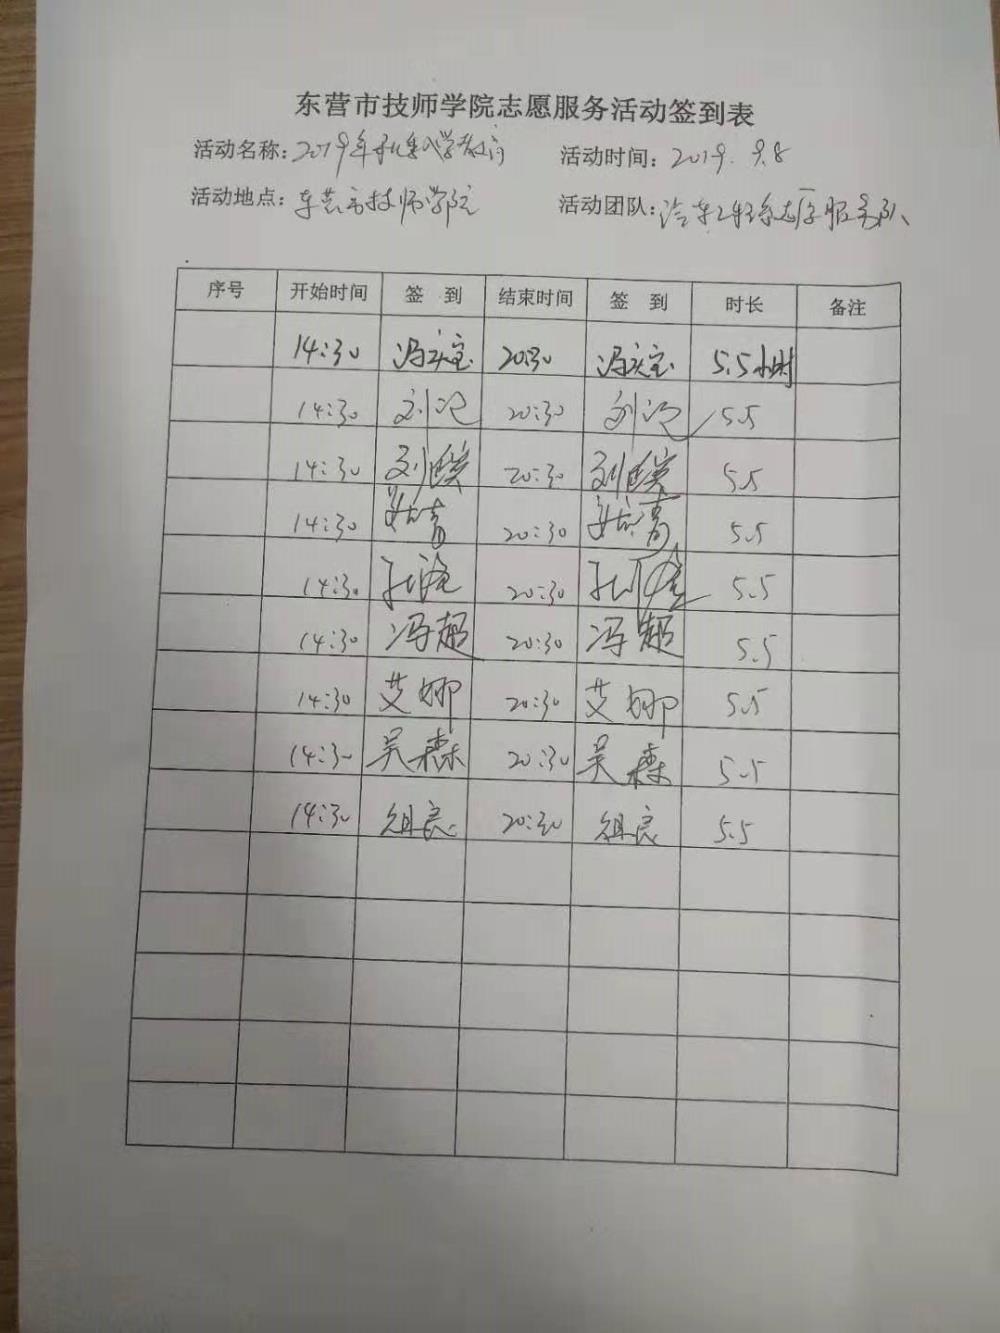 东营市技师学院志愿服务活动签到表
活动名称：2019年秋季入学教育 活动时间：2019.9.8
活动地点：东营市技师学院 活动团队：汽车工程系志愿服务队
序号 开始时间 签到 结束时间 签到 时长 备注
14:30 冯庆宝 20:30 冯庆宝 5.5小时
14:30 刘 20:30 刘 5.5
14:30 刘 20:30 刘 5.5
14:30 20:30 5.5
14:30 20:30 5.5
14:30 冯超 20:30 冯超 5.5
14:30 艾娜 20:30 艾娜 5.5
14:30 吴森 20:30 吴森 5.5
14:30 20:30 5.5